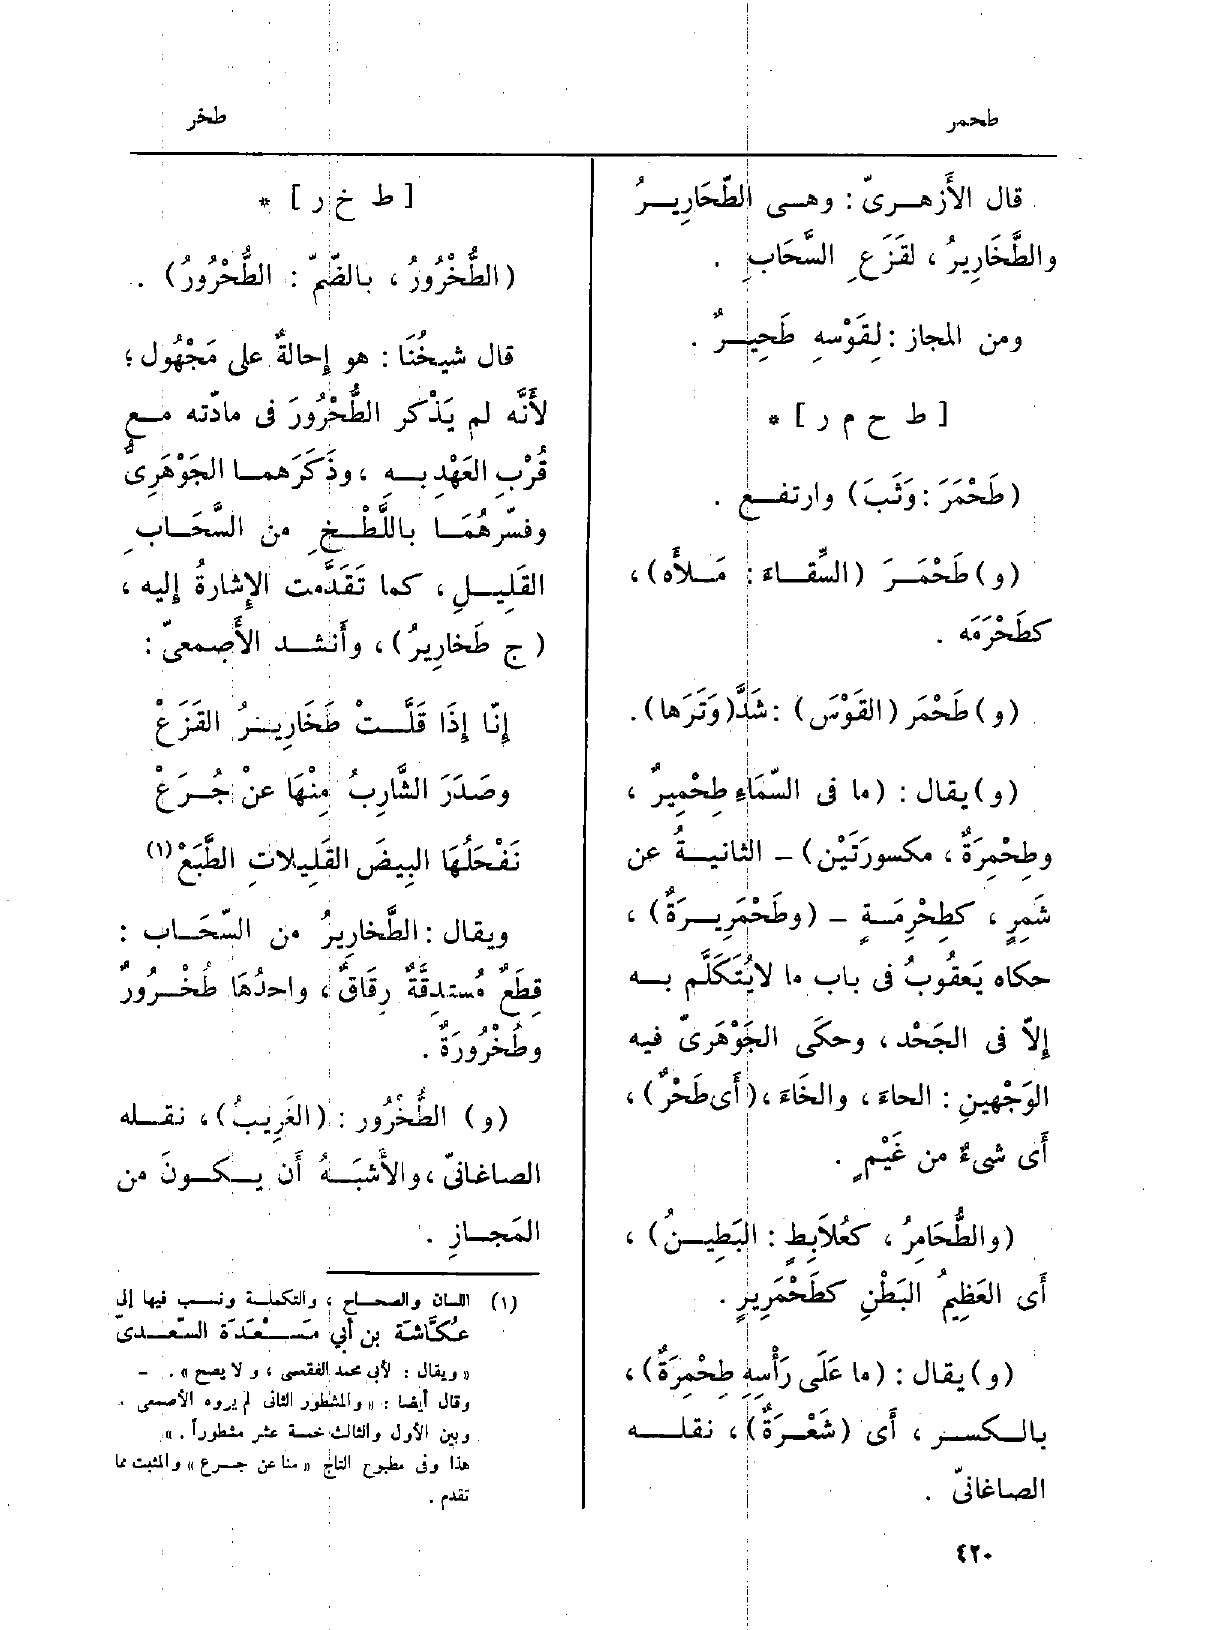 طحمر
طخر
قال الأَزهـرىّ : وهـى الطَّحَارِيـرُ
والطَّخَارِيرُ ، لقَزَعِ السَّحَابِ .
ومن المجاز : لِقَوْسِهِ طَحِيـرٌ .
[ ط ح م ر ] *
(طَحْمَرَ : وَثَبَ) وارتفـع .
(و) طَحْمَـرَ (السِّقـاءَ : مَـلأَه) ،
كطَحْرَمَه .
(و) طَحْمَر (القَوْسَ) : شَدَّ (وَتَرَها) .
(و) يقال : (ما فى السَّمَاءِ طِحْمِيرٌ ،
وطِحْمِرَةٌ ، مكسورَتَيْن) – الثانيـةُ عن
شَمِرٍ ، كطِحْرِمَـةٍ – (وطَحْمَرِيـرَةٌ) ،
حكاه يَعقُوبُ فى باب ما لايُتَكَلَّم بـه
إلاّ فى الجَحْد ، وحكَى الجَوْهَرىّ فيه
الوَجْهينِ : الحاءَ ، والخَاءَ ، (أَى طَخْرٌ) ،
أَى شىءٌ من غَيْمٍ .
(والطُّحَامِرُ ، كعُلاَبِطٍ : البَطِيـنُ) ،
أَى العَظِيمُ البَطْنِ كطَحْمَرِيرٍ .
(و) يقال : (ما عَلَى رَأْسِهِ طِحْمِرَةٌ) ،
بالـكسـر ، أَى (شَعْـرَةٌ) ، نقلـه
الصاغانىّ .
[ ط خ ر ] *
(الطُّخْرُورُ ، بالضّمّ : الطُّحْرُورُ) .
قال شيخُنَا : هو إحالةٌ على مَجْهُول ؛
لأَنَّه لم يَذْكر الطُّحْرُورَ فى مادّته مـع
قُرْبِ العَهْدِ بـه ، وذَكَرَهمـا الجَوْهَرِىُّ
وفسّرهُمَـا باللَّطْـخِ من السَّحَـابِ
القَلِيـلِ ، كما تَقَدَّمت الإشارةُ إليه ،
( ج طَخارِيرُ) ، وأَنشـد الأَصمعىّ :
إِنّا إِذَا قَلَّـتْ طَخَارِيـرُ القَزَعْ
وصَدَرَ الشَّارِبُ مِنْهَا عنْ جُـرَعْ
نَفْحَلُهَا البِيضَ القَلِيلاتِ الطَّبَعْ (١)
ويقال : الطَّخارِيرُ من السَّحَـاب :
قِطَعٌ مُستدِقَّةٌ رِقَاقٌ ، واحدُهَا طُخْـرُورٌ
وطُخْرُورَةٌ .
(و) الطُّخْرُور : (الغَرِيبُ) ، نقـله
الصاغانىّ ، والأَشبَـهُ أَن يـكـونَ من
المَجـازِ .
(١) اللسان والصحـاح ، والتكملـة ونسـب فيها إلى
عُكَّاشَة بن أَبي مَسْـعَدَة السَّعـدىّ
« ويقال : لأبي محمد الفقعسى ، ولا يصح » . –
وقال أيضا : « والمشطور الثانى لم يروه الأصمعى .
وبين الأول والثالث خمسة عشر مشطوراً . »
هذا وفى مطبوع التاج « منا عن جـرع » والمثبت مما
تقدم .
٤٢٠